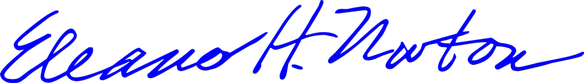 Eleano H. Norton